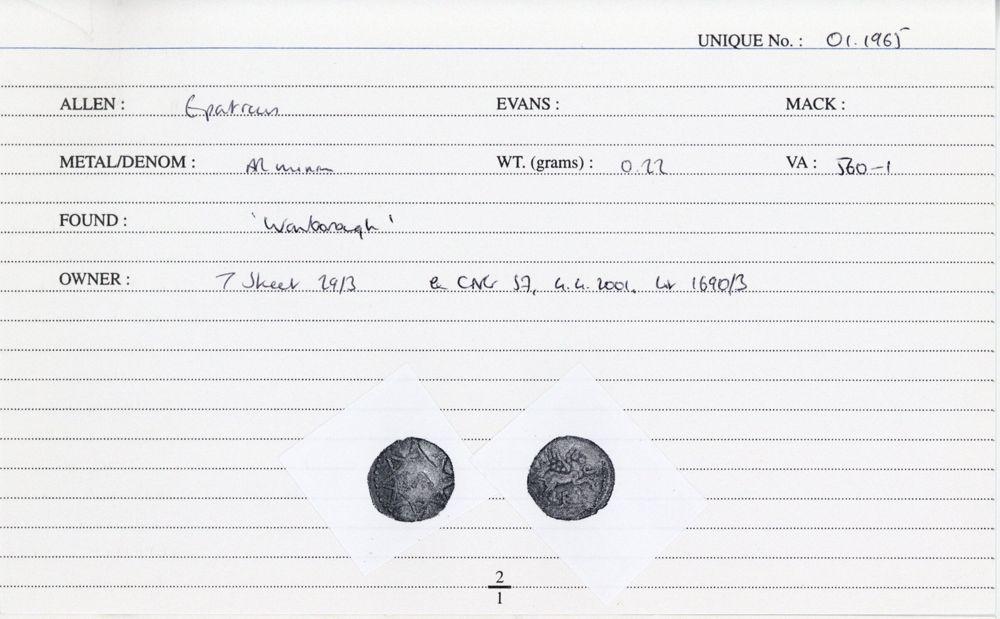 UNIQUE No. : 01.1965
ALLEN : Epaticcus EVANS : MACK :
METAL/DENOM : AR minim WT. (grams) : 0.22 VA : 560-1
FOUND : 'Wanborough'
OWNER : T Skeet 29/3 Ex CNG 57, 4.4.2001, Lot 1690/3
2
1